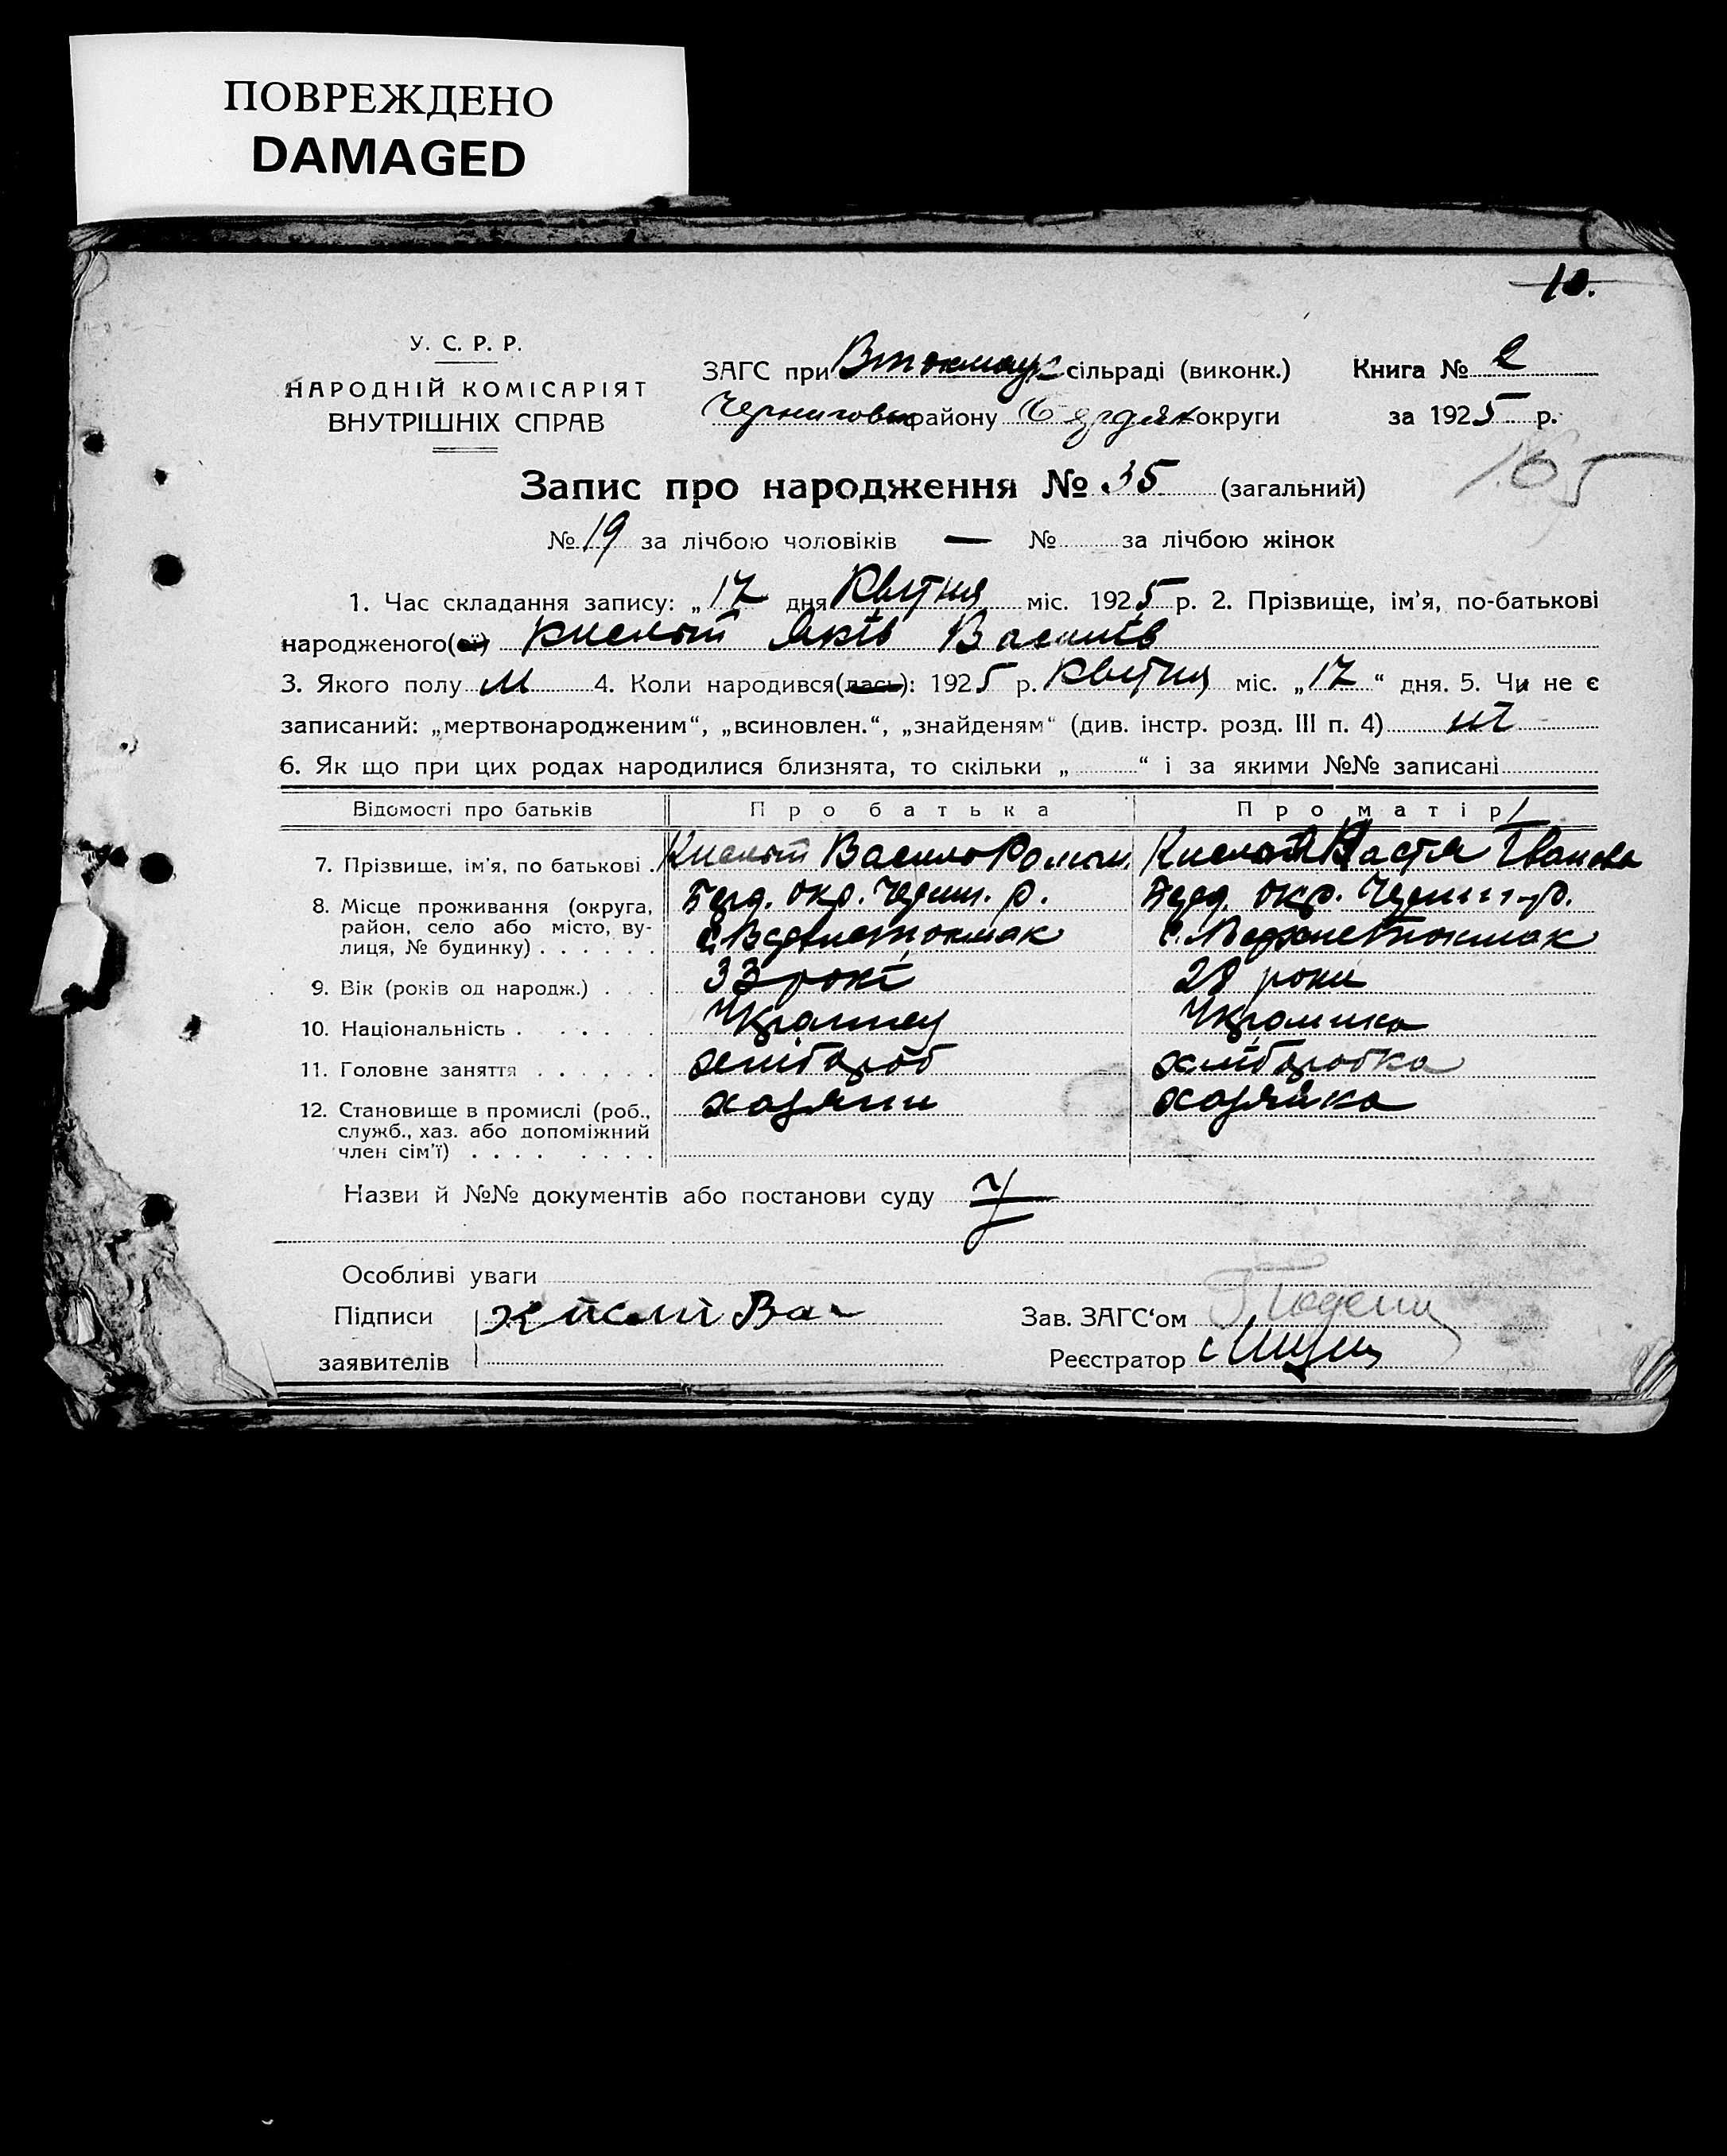 ПОВРЕЖДЕНО
DAMAGED
10.
У. С. Р. Р.
НАРОДНІЙ КОМІСАРІЯТ
ВНУТРІШНІХ СПРАВ
ЗАГС при Втокмак сільраді (виконк.) Книга № 2
Чернигов району Бердян округи за 1925 р.
165
Запис про народження № 35 (загальний)
№ 19 за лічбою чоловіків — № за лічбою жінок
1. Час складання запису: „17 дня Квітня міс. 1925 р. 2. Прізвище, ім'я, по-батькові
народженого(ої) Яків Василів
3. Якого полу М 4. Коли народився(лась): 1925 р. Квітня міс. „17“ дня. 5. Чи не є
записаний: „мертвонародженим“, „всиновлен.“, „знайденям“ (див. інстр. розд. III п. 4) ні
6. Як що при цих родах народилися близнята, то скільки „ “ і за якими №№ записані
Відомості про батьків Про батька Про матір
7. Прізвище, ім'я, по батькові . Василь Роман. Настя Іванова
8. Місце проживання (округа, район, село або місто, вулиця, № будинку) . . . . . .
Берд. окр. Черниг. р. Берд. окр. Черниг. р.
с. Верхнетокмак с. Верхнетокмак
9. Вік (років од народж.) . . . 33 рокі 28 роки
10. Національність . . . . Українец Українка
11. Головне заняття . . . . . . хлібороб хліборобка
12. Становище в промислі (роб., служб., хаз. або допоміжний член сім'ї) . . . . . . . . хазяин хазяйка
Назви й №№ документів або постанови суду
Особливі уваги
Підписи Зав. ЗАГС'ом
заявителів Реєстратор